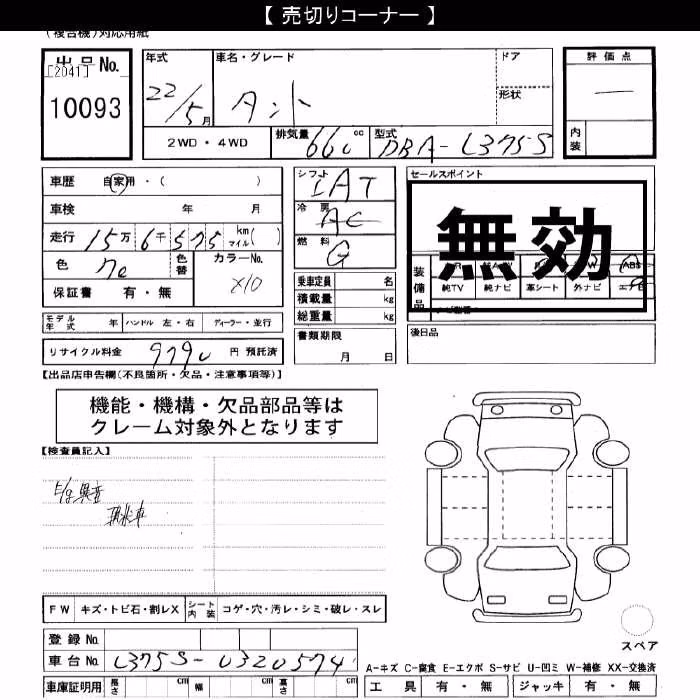 【 売切りコーナー 】
(複合機)対応用紙
出品No.
[2041]
10093
年式
22/5月
車名・グレード
タント
ドア
形状
評価点
内装
2WD・4WD
排気量
660 cc
型式
DBA-L375S
車歴 自家用・( )
車検 年 月
走行 15万6千575 km マイル( )
色
色替
カラーNo.
X10
保証書 有・無
モデル年式 年 ハンドル 左・右 ディーラー・並行
リサイクル料金 9790 円 預託済
シフト
IAT
冷房
AC
燃料
G
乗車定員 名
積載量 kg
総重量 kg
書類期限
月 日
セールスポイント
無効
装備品
ABS
純TV 純ナビ 革シート 外ナビ エアB
後日品
【出品店申告欄(不良箇所・欠品・注意事項等)】
機能・機構・欠品部品等は
クレーム対象外となります
【検査員記入】
E/g異音
現状車
FW キズ・トビ石・割レX シート内装 コゲ・穴・汚レ・シミ・破レ・スレ
登録No.
車台No. L375S-0320574
車庫証明用 長さ cm 幅 cm 高さ cm
スペア
A-キズ C-腐食 E-エクボ S-サビ U-凹ミ W-補修 XX-交換済
工具 有・無 ジャッキ 有・無